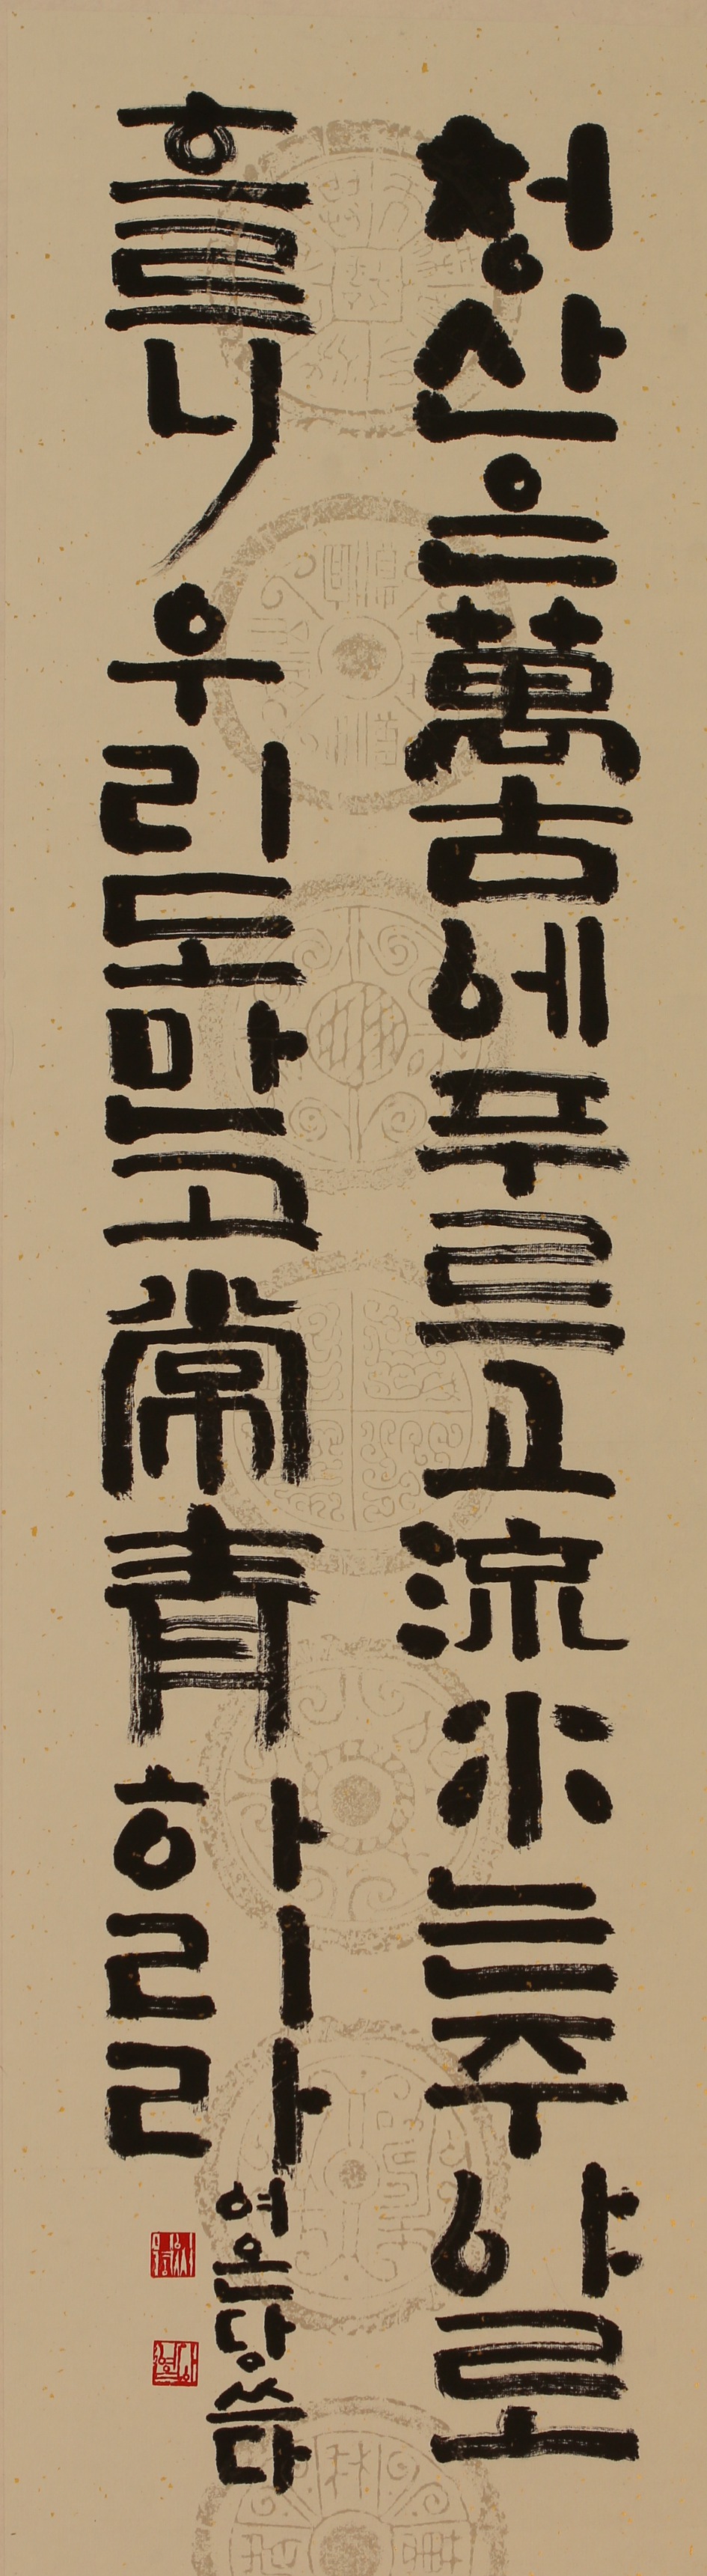 청산은萬古에푸르고流水는주야로
흘르니우리도만고常靑하리라
여온당쓰다